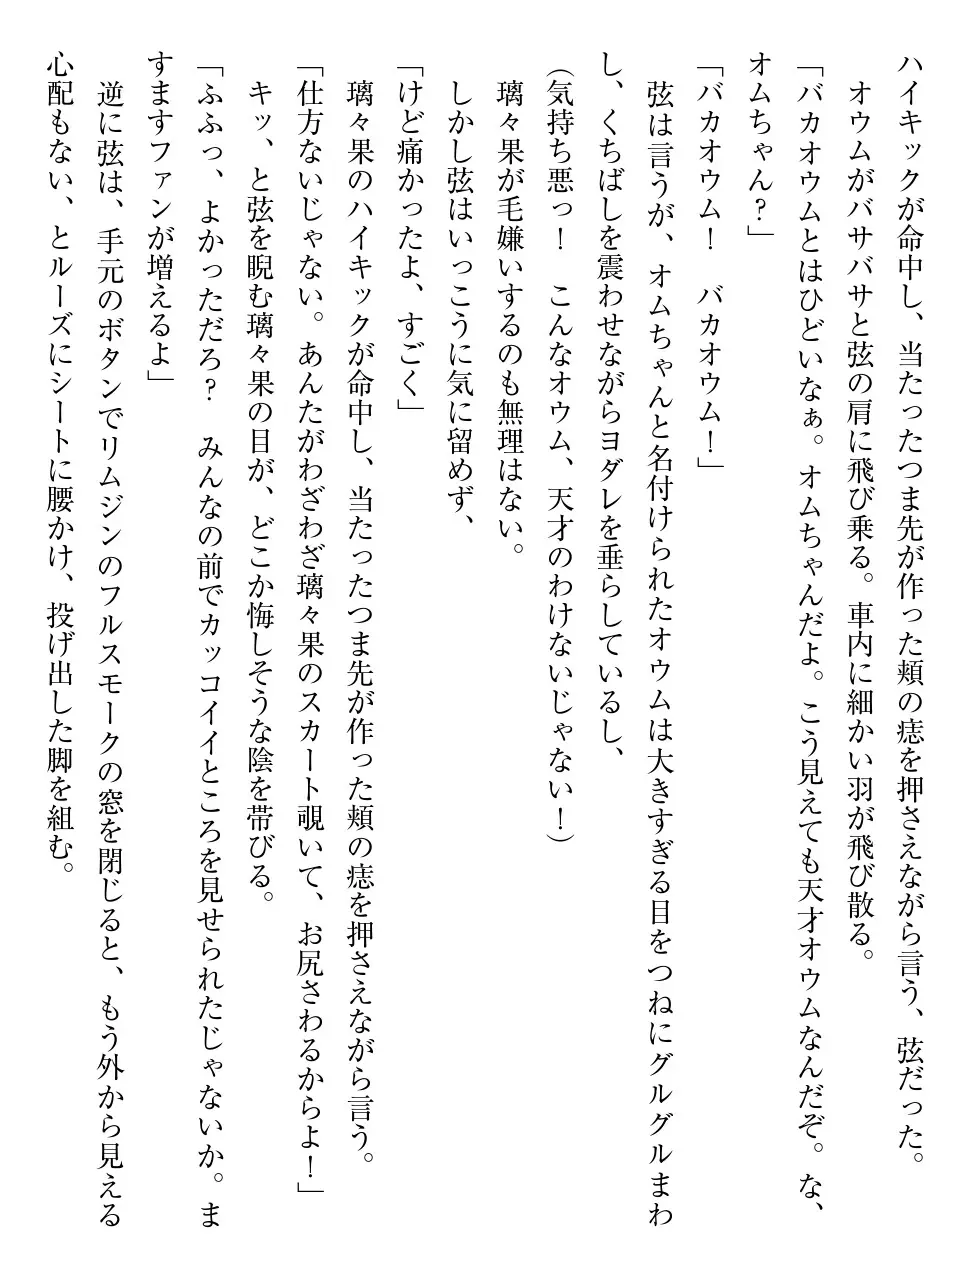 ハイキックが命中し、当たったつま先が作った頬の痣を押さえながら言う、弦だった。
　オウムがバサバサと弦の肩に飛び乗る。車内に細かい羽が飛び散る。
「バカオウムとはひどいなぁ。オムちゃんだよ。こう見えても天才オウムなんだぞ。な、
オムちゃん？」
「バカオウム！　バカオウム！」
　弦は言うが、オムちゃんと名付けられたオウムは大きすぎる目をつねにグルグルまわ
し、くちばしを震わせながらヨダレを垂らしているし、
（気持ち悪っ！　こんなオウム、天才のわけないじゃない！）
　璃々果が毛嫌いするのも無理はない。
　しかし弦はいっこうに気に留めず、
「けど痛かったよ、すごく」
　璃々果のハイキックが命中し、当たったつま先が作った頬の痣を押さえながら言う。
「仕方ないじゃない。あんたがわざわざ璃々果のスカート覗いて、お尻さわるからよ！」
　キッ、と弦を睨む璃々果の目が、どこか悔しそうな陰を帯びる。
「ふふっ、よかっただろ？　みんなの前でカッコイイところを見せられたじゃないか。ま
すますファンが増えるよ」
　逆に弦は、手元のボタンでリムジンのフルスモークの窓を閉じると、もう外から見える
心配もない、とルーズにシートに腰かけ、投げ出した脚を組む。